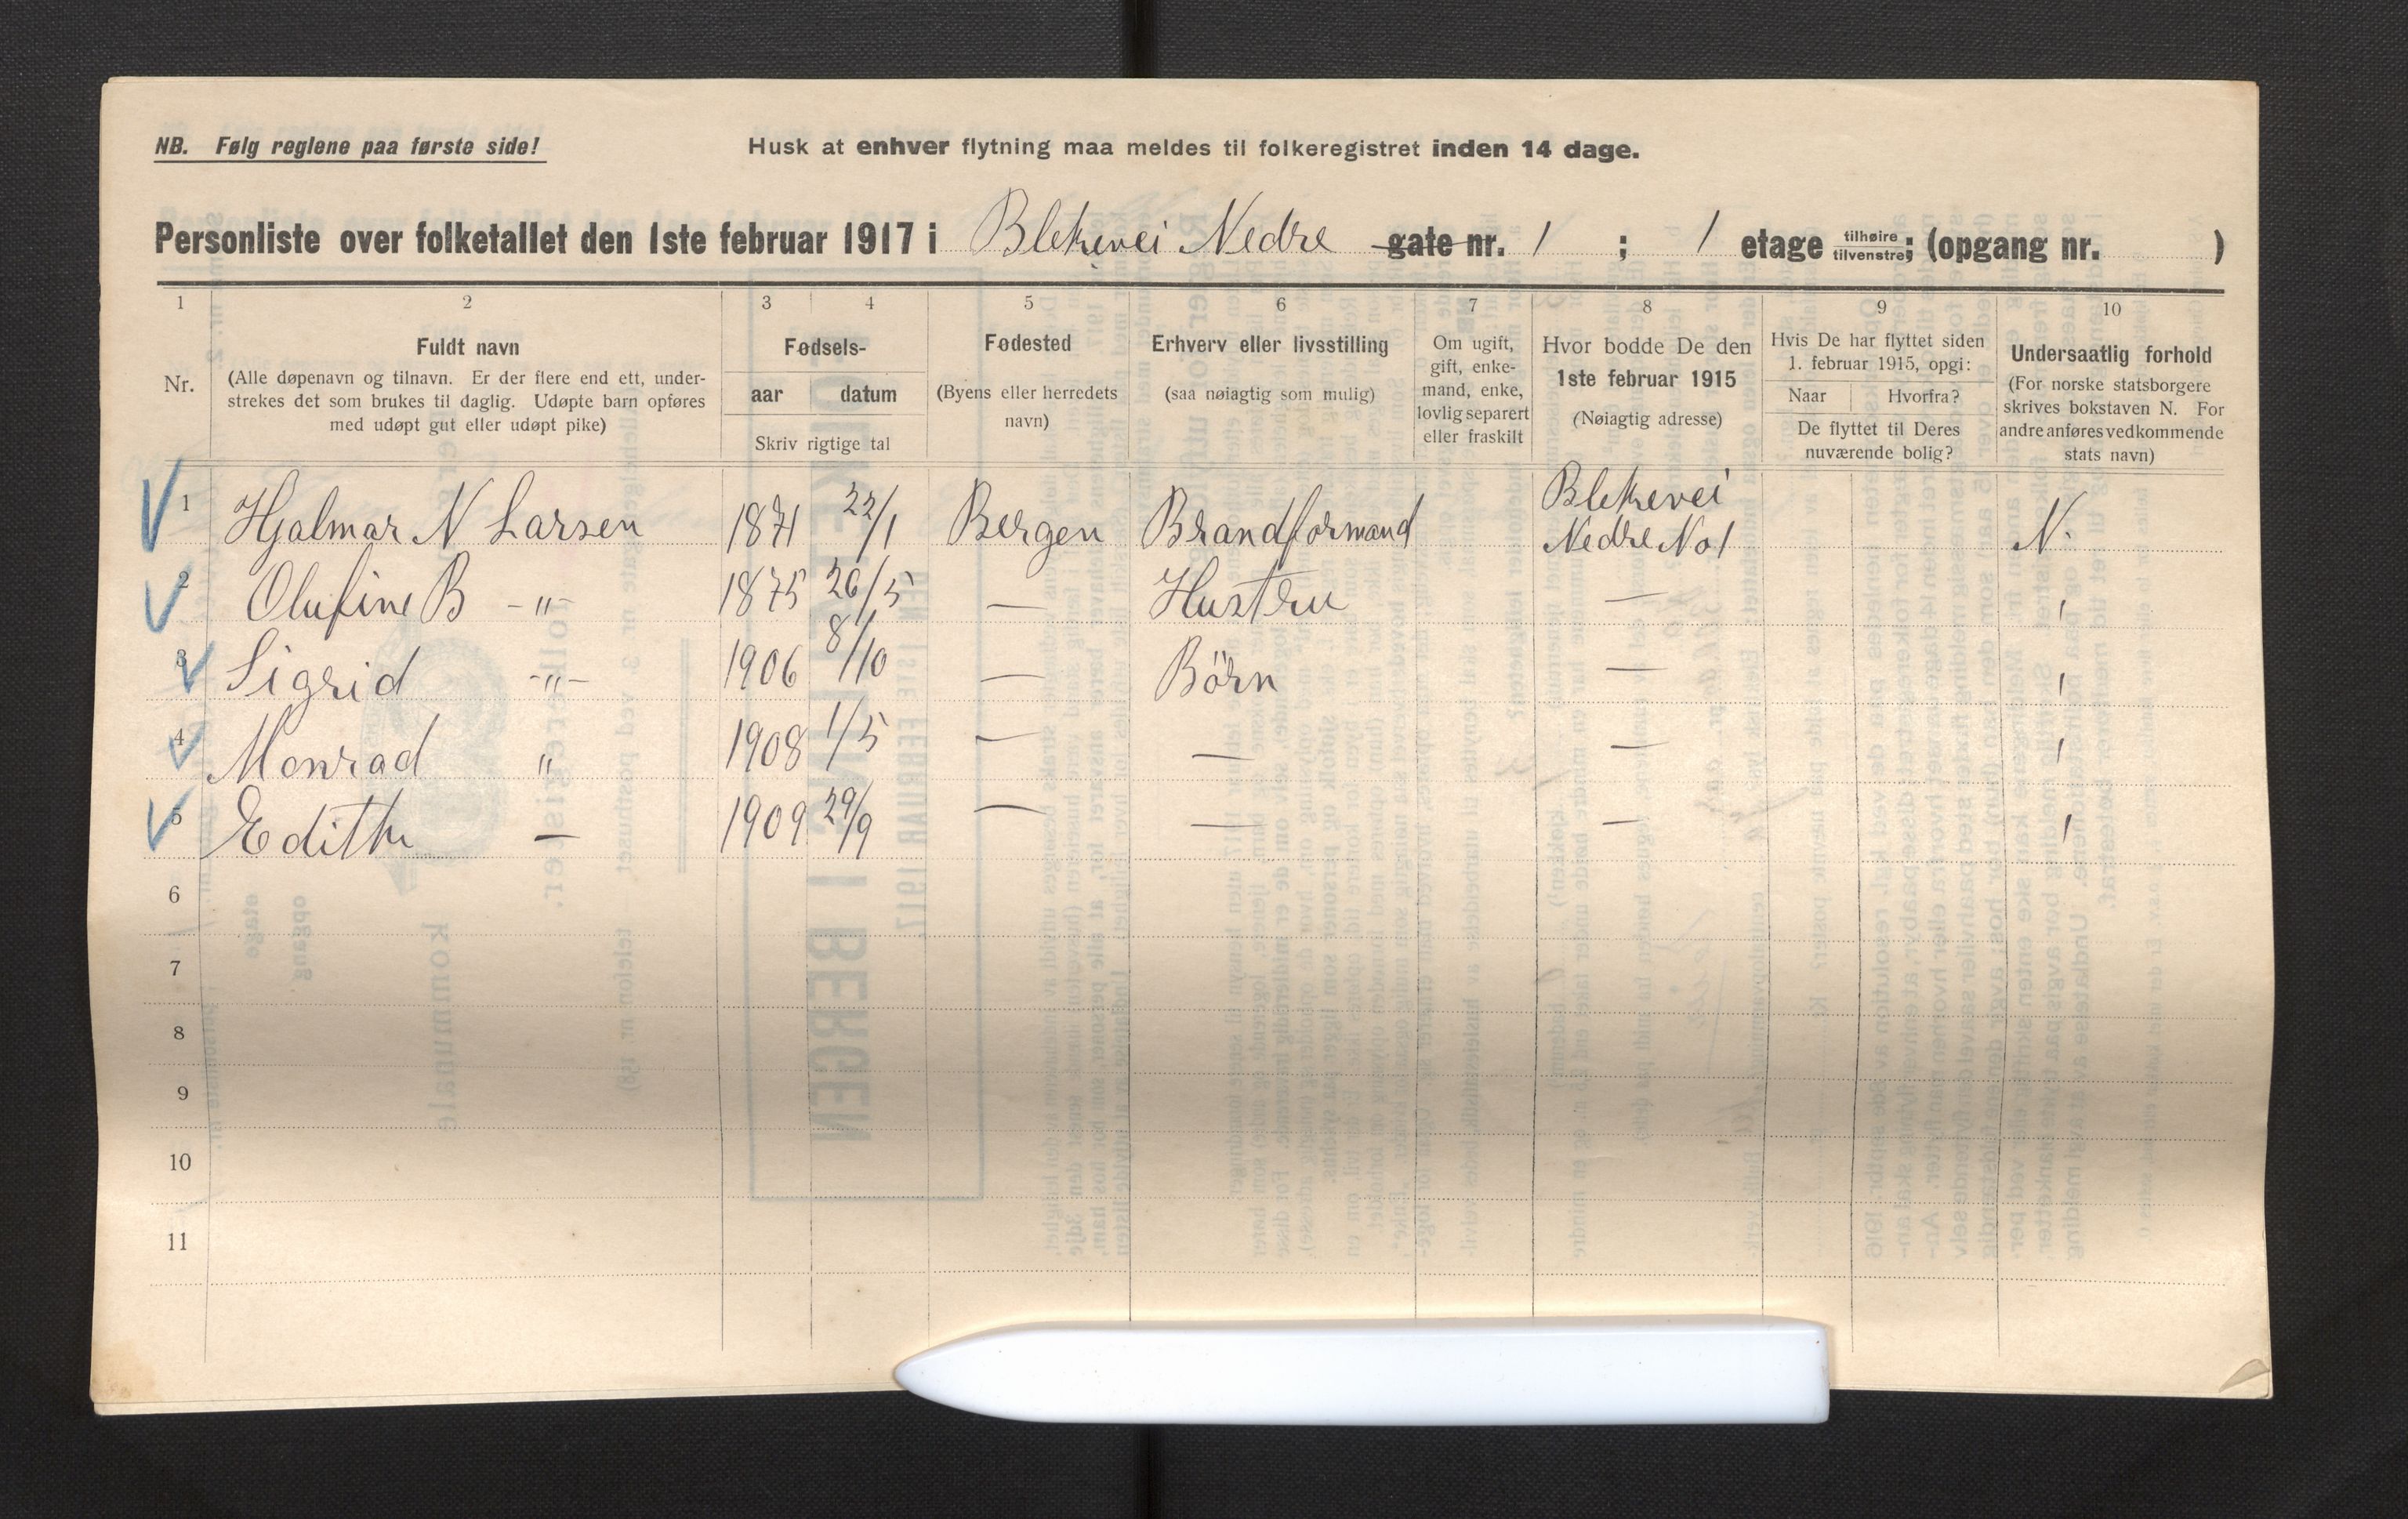 NB. Følg reglene paa første side!
Husk at enhver flytning maa meldes til folkeregistret inden 14 dage.
Personliste over folketallet den 1ste februar 1917 i Blekevei Nedre gate nr. 1 ; 1 etage tilhøire tilvenstre; (opgang nr. )
1 2 3 4 5 6 7 8 9 10
Nr.
Fuldt navn
(Alle døpenavn og tilnavn. Er der flere end ett, under-
strekes det som brukes til daglig. Udøpte barn opføres
med udøpt gut eller udøpt pike)
Fødsels-
aar datum
Skriv rigtige tal
Fødested
(Byens eller herredets
navn)
Erhverv eller livsstilling
(saa nøiagtig som mulig)
Om ugift,
gift, enke-
mand, enke,
lovlig separert
eller fraskilt
Hvor bodde De den
1ste februar 1915
(Nøiagtig adresse)
Hvis De har flyttet siden
1. februar 1915, opgi:
Naar Hvorfra?
De flyttet til Deres
nuværende bolig?
Undersaatlig forhold
(For norske statsborgere
skrives bokstaven N. For
andre anføres vedkommende
stats navn)
1 Hjalmar N Larsen 1871 22/1 Bergen Brandformand Blekevei Nedre No 1 N.
2 Olufine B -"- 1875 26/5 — Hustru — '
3 Sigrid -"- 1906 8/10 — Børn — '
4 Monrad " 1908 1/5 — — — '
5 Edith — 1909 29/9 — — — '
6
7
8
9
10
11